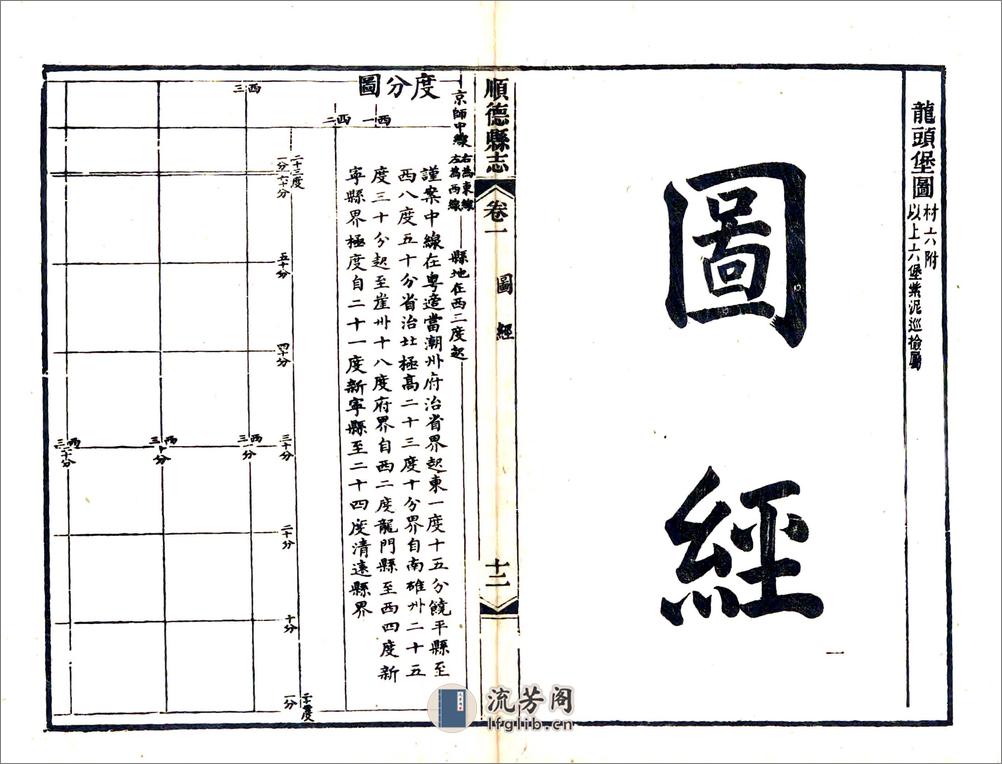 龍頭堡圖
村六附
以上六堡紫泥巡檢屬
圖經
一
順德縣志
卷一
圖經
十二
度分圖
京師中線
右為東線
左為西線
縣地在西二度起
謹案中線在粵適當潮州府治省界起東一度十五分饒平縣至
西八度五十分省治北極高二十三度十分界自南雄州二十五
度三十分起至崖州十八度府界自西二度龍門縣至西四度新
寧縣界極度自二十一度新寧縣至二十四度清遠縣界
西一
西二
西三
二十三度
一分
六十分
五十分
四十分
三十分
西三一分
西三十分
西三二十分
二十分
十分
一分
流芳阁
lfglib.cn